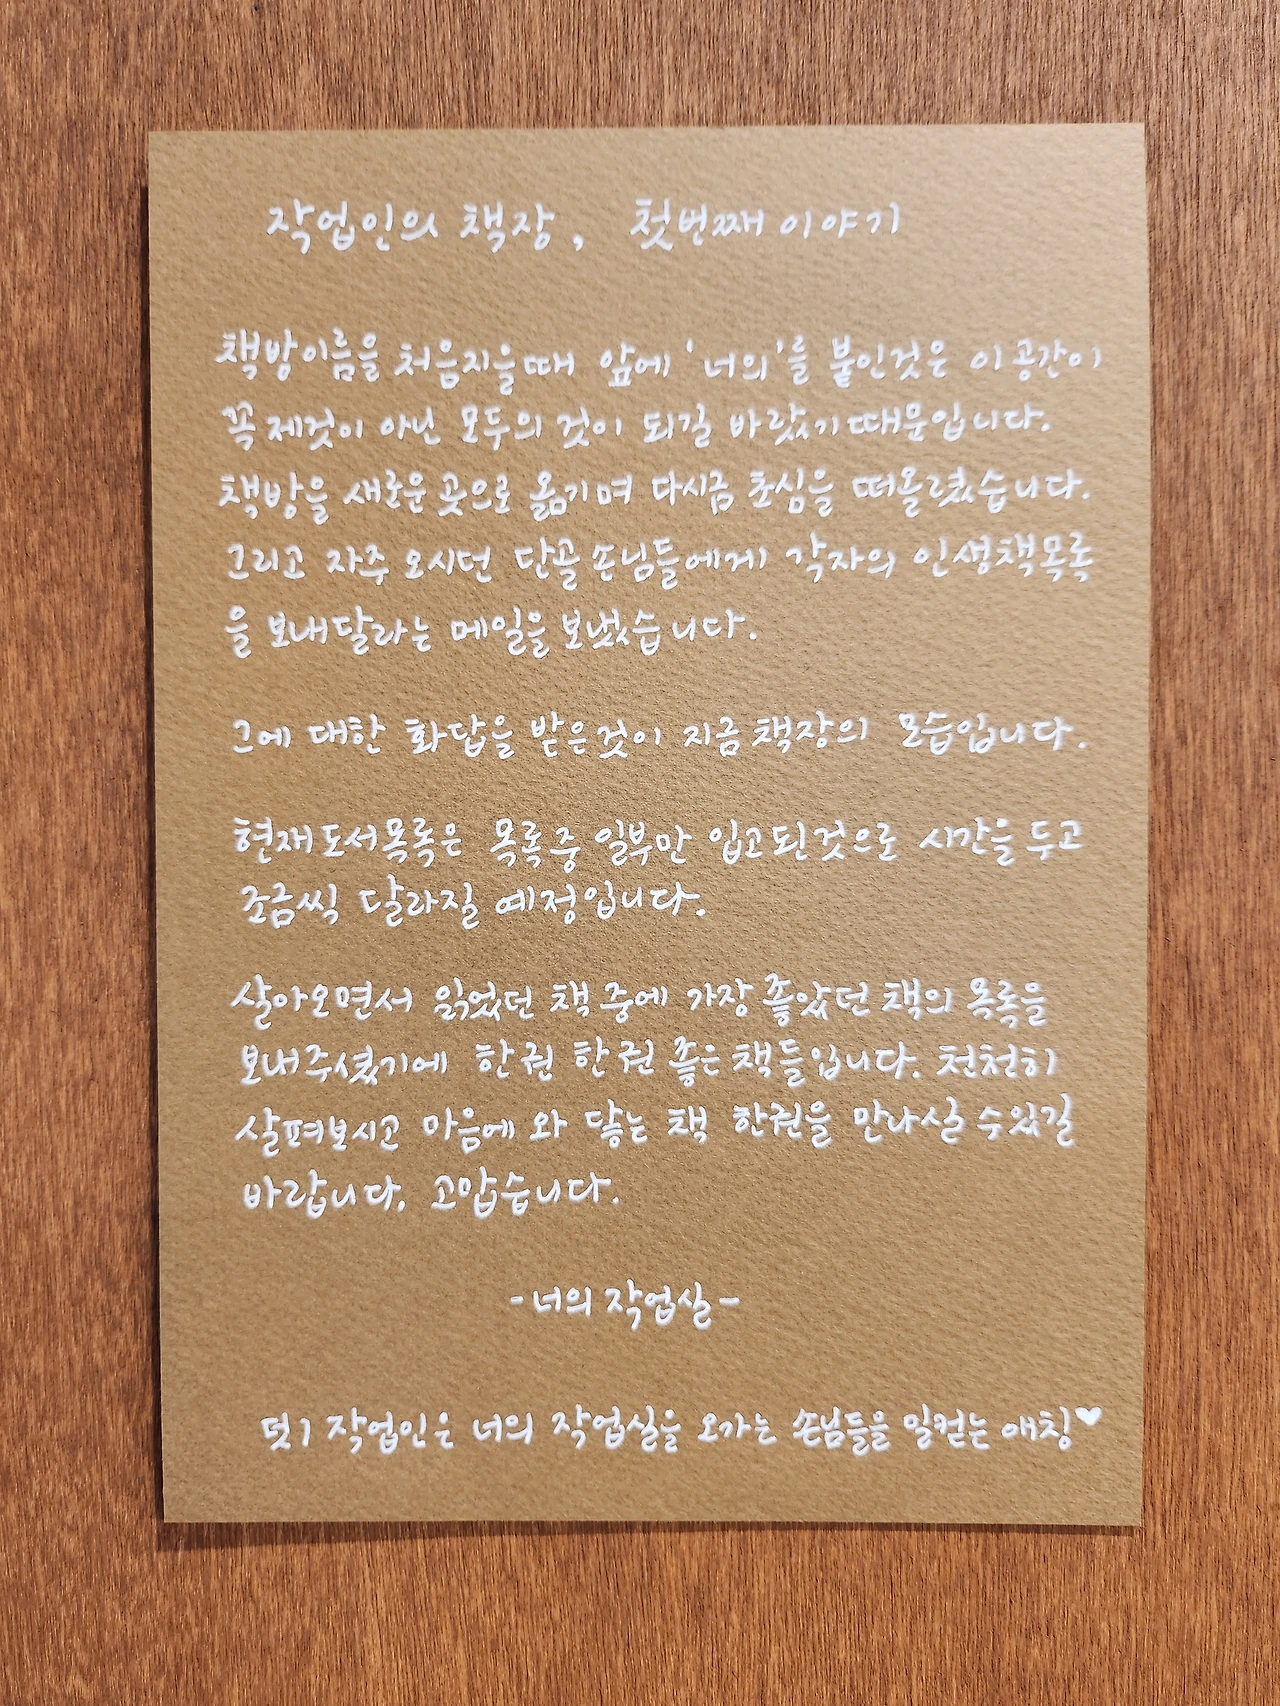 작업인의 책장, 첫번째 이야기
책방이름을 처음지을때 앞에 '너의'를 붙인것은 이 공간이
꼭 제것이 아닌 모두의 것이 되길 바랐기 때문입니다.
책방을 새로운 곳으로 옮기며 다시금 초심을 떠올렸습니다.
그리고 자주 오시던 단골 손님들에게 각자의 인생책목록
을 보내달라는 메일을 보냈습니다.
그에 대한 화답을 받은것이 지금 책장의 모습입니다.
현재 도서목록은 목록 중 일부만 입고된것으로 시간을 두고
조금씩 달라질 예정입니다.
살아오면서 읽었던 책 중에 가장 좋았던 책의 목록을
보내주셨기에 한 권 한 권 좋은 책들입니다. 천천히
살펴보시고 마음에 와 닿는 책 한권을 만나실 수 있길
바랍니다. 고맙습니다.
-너의 작업실-
덧1 작업인은 너의 작업실을 오가는 손님들을 일컫는 애칭♥